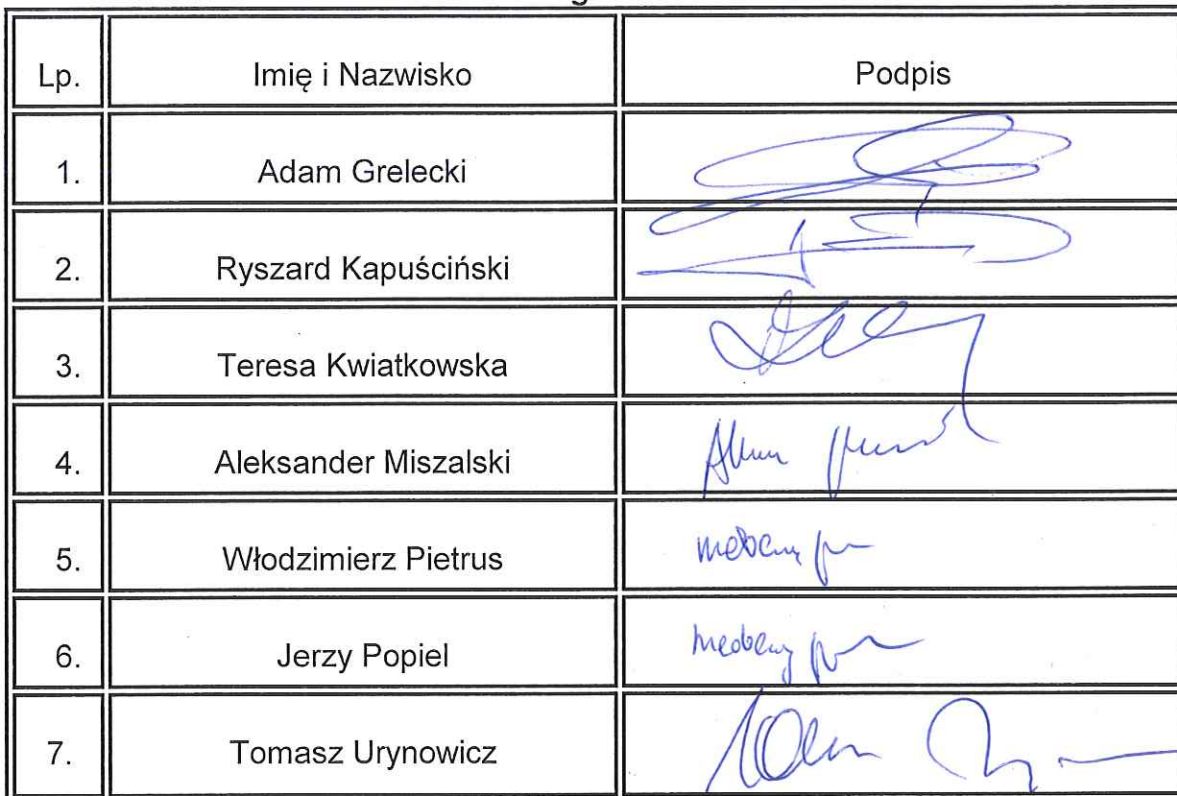 Lp. Imię i Nazwisko Podpis
1. Adam Grelecki
2. Ryszard Kapuściński
3. Teresa Kwiatkowska
4. Aleksander Miszalski
5. Włodzimierz Pietrus nieobecny
6. Jerzy Popiel nieobecny
7. Tomasz Urynowicz